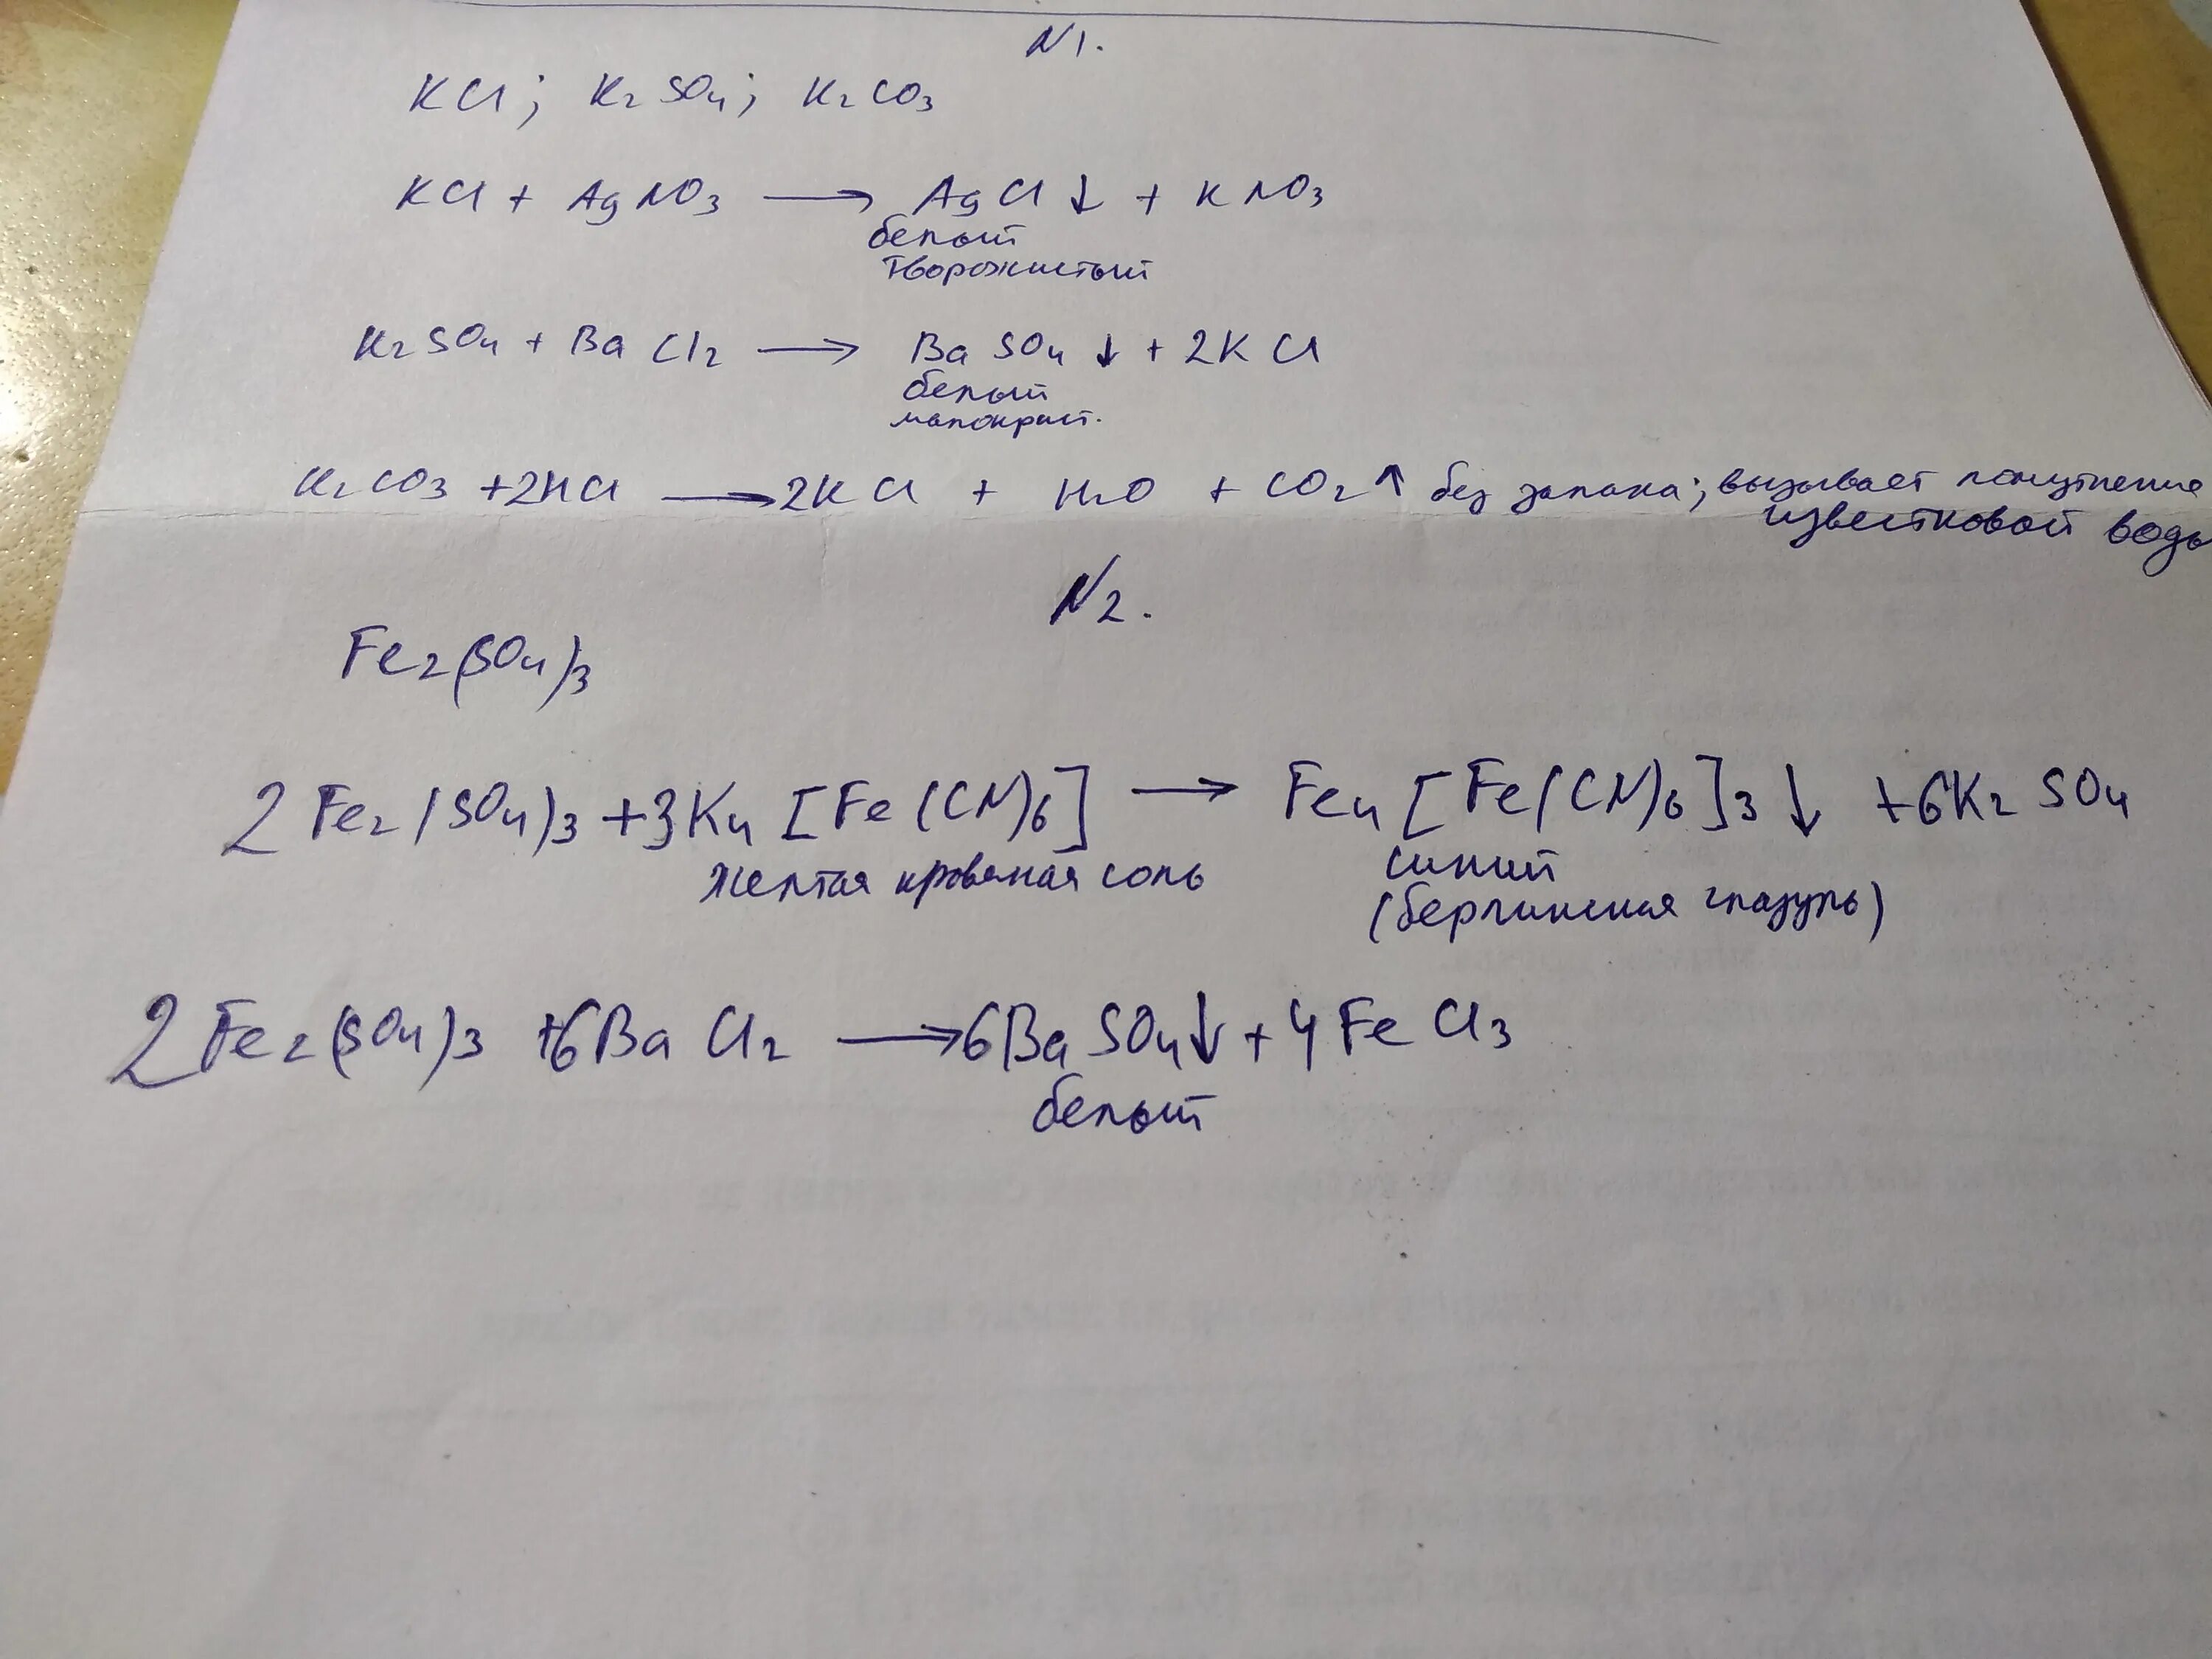 N1.
KCl; K₂SO₄; K₂CO₃
KCl + AgNO₃ → AgCl↓ + KNO₃
белый
творожистый
K₂SO₄ + BaCl₂ → BaSO₄↓ + 2KCl
белый
K₂CO₃ + 2HCl → 2KCl + H₂O + CO₂↑ без запаха; вызывает помутнение
известковой воды
N2.
Fe₂(SO₄)₃
2Fe₂(SO₄)₃ + 3K₄[Fe(CN)₆] → Fe₄[Fe(CN)₆]₃↓ + 6K₂SO₄
желтая кровяная соль
синий
(берлинская глазурь)
2Fe₂(SO₄)₃ + 6BaCl₂ → 6BaSO₄↓ + 4FeCl₃
белый